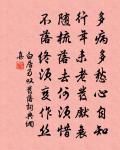 多病多愁心自知
行年未老髮先衰
隨梳落去何須惜
不落終須變作絲
白居易嘆髮落詞典網